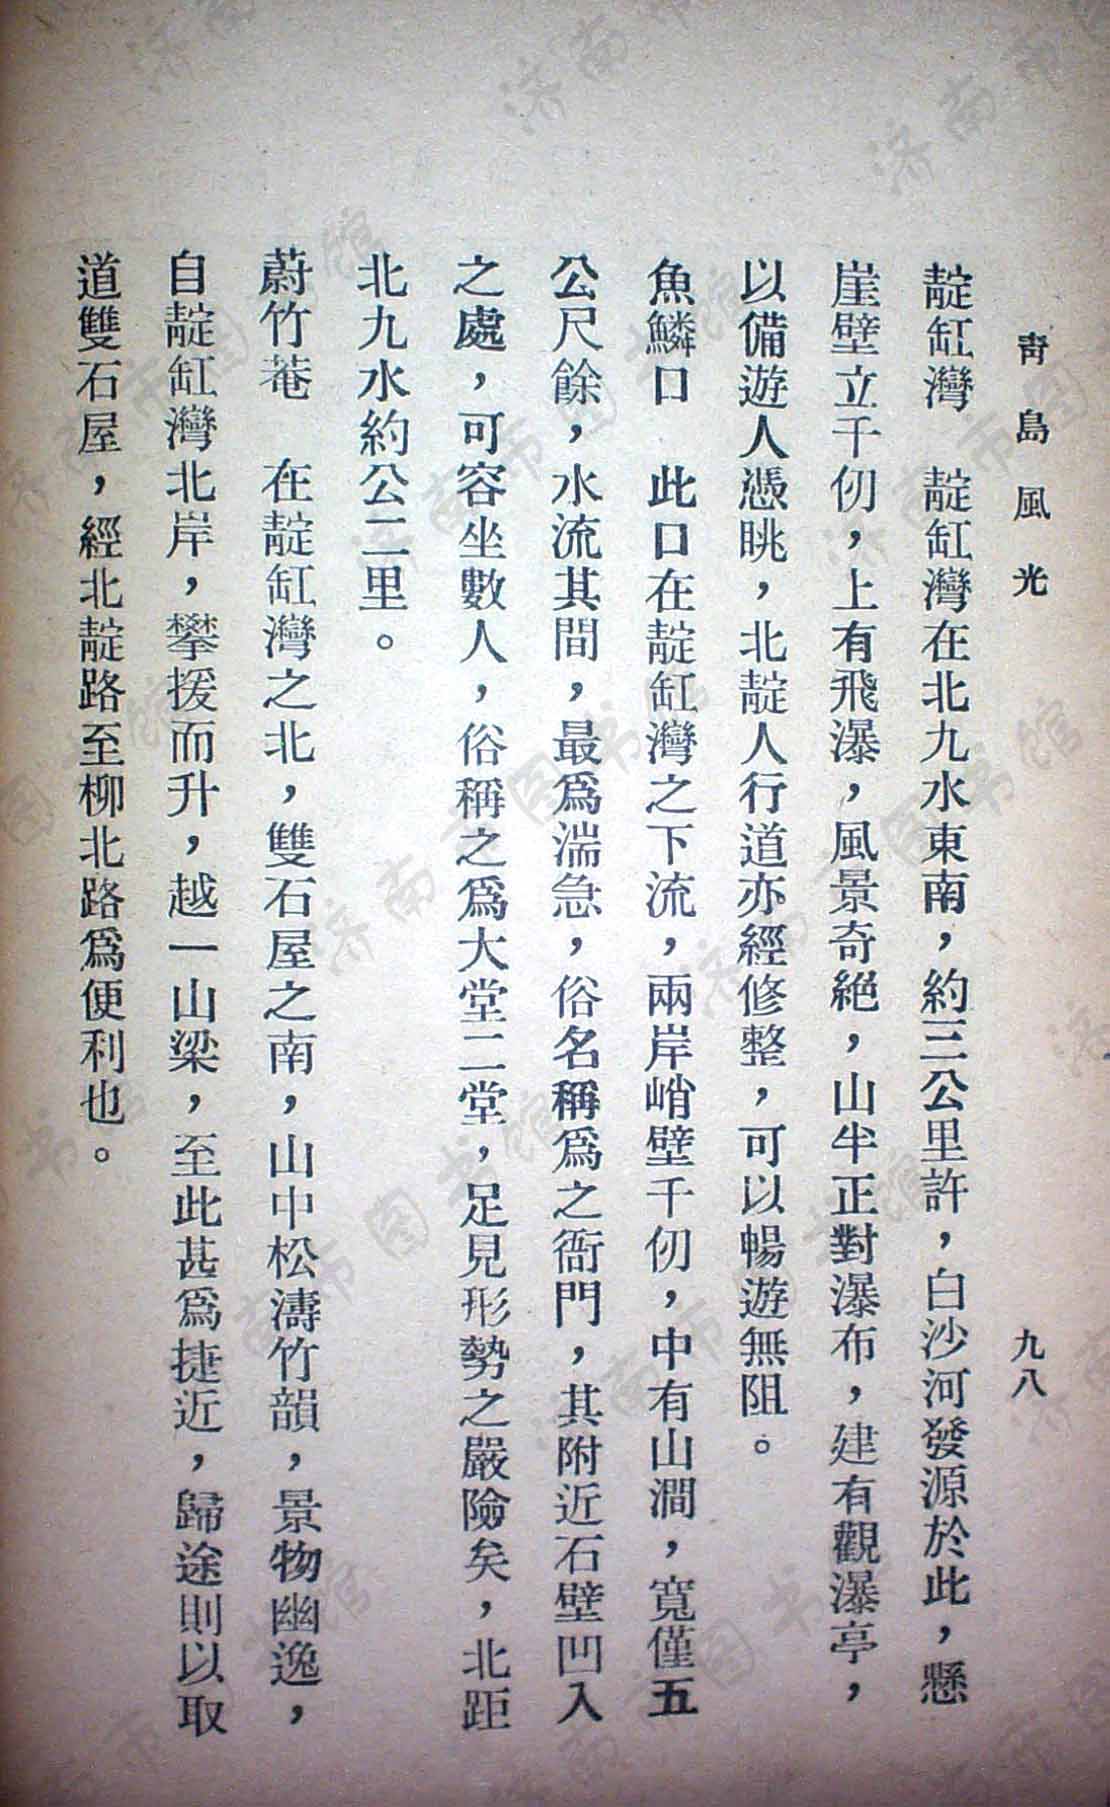 青島風光
九八
靛缸灣　靛缸灣在北九水東南，約三公里許，白沙河發源於此，懸
崖壁立千仞，上有飛瀑，風景奇絕，山半正對瀑布，建有觀瀑亭，
以備遊人憑眺，北靛人行道亦經修整，可以暢遊無阻。
魚鱗口　此口在靛缸灣之下流，兩岸峭壁千仞，中有山澗，寬僅五
公尺餘，水流其間，最爲湍急，俗名稱爲之衙門，其附近石壁凹入
之處，可容坐數人，俗稱之爲大堂二堂，足見形勢之嚴險矣，北距
北九水約公二里。
蔚竹菴　在靛缸灣之北，雙石屋之南，山中松濤竹韻，景物幽逸，
自靛缸灣北岸，攀援而升，越一山梁，至此甚爲捷近，歸途則以取
道雙石屋，經北靛路至柳北路爲便利也。
济南市图书馆